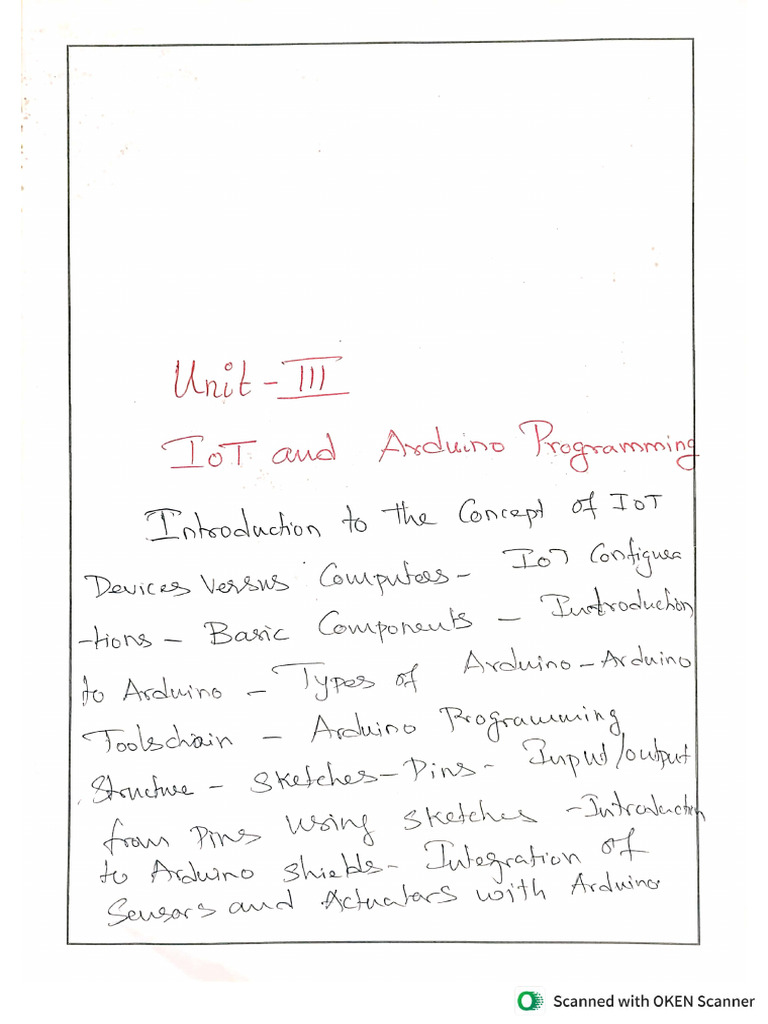 Unit - III
IoT and Arduino Programming
Introduction to the Concept of IoT
Devices Versus Computers - IoT Configura
-tions - Basic Components - Introduction
to Arduino - Types of Arduino - Arduino
Toolschain - Arduino Programming
Structure - Sketches - Pins - Input/output
from Pins using sketches - Introduction
to Arduino shields - Integration of
Sensors and Actuators with Arduino
Scanned with OKEN Scanner